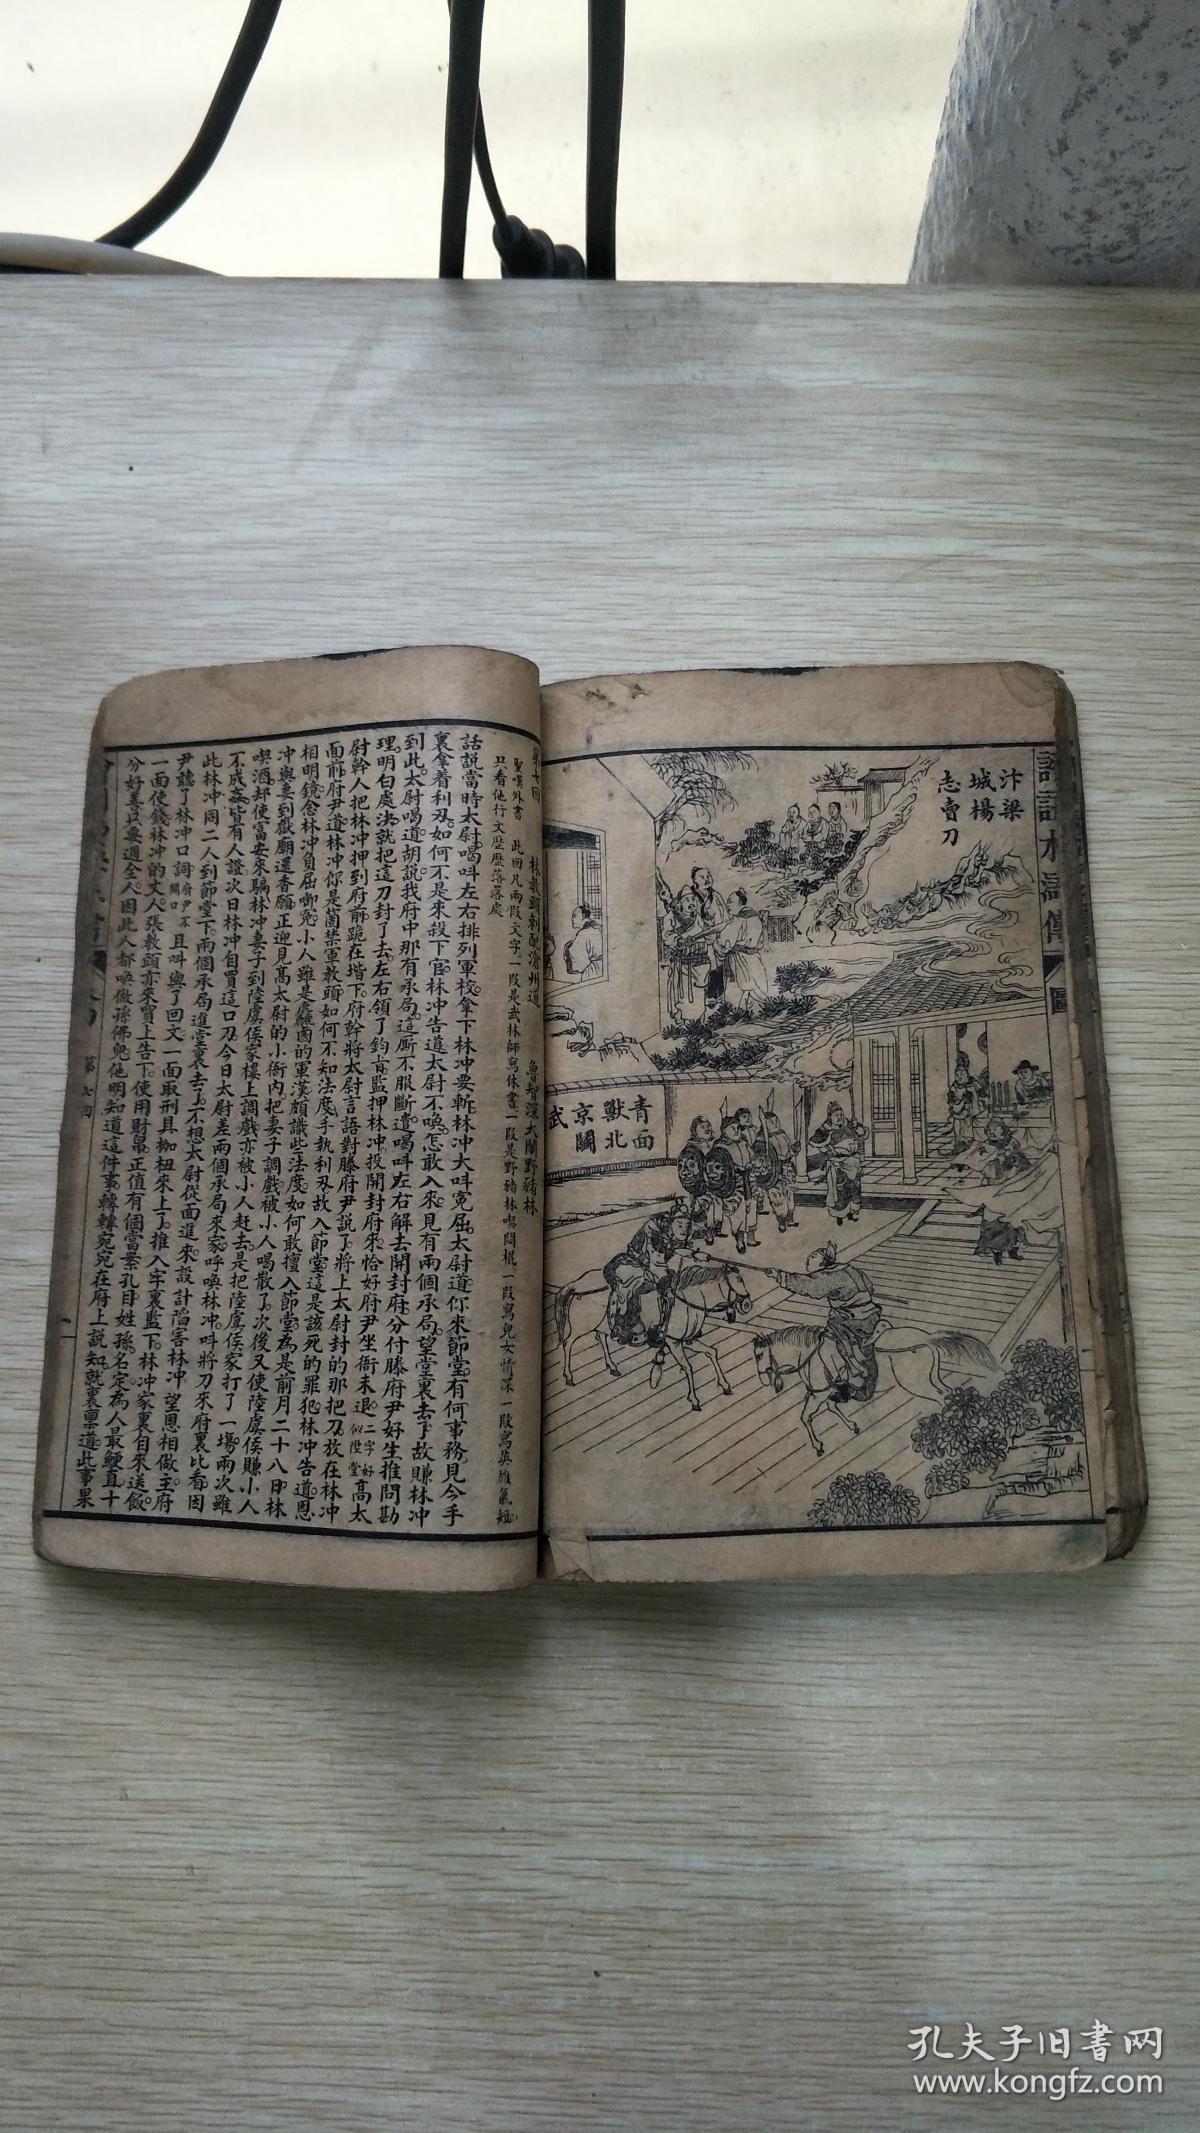 汴梁
城楊
志賣刀
青面
獸北
京鬬
武
水滸傳
圖
第七回
林教頭刺配滄州道 魯智深大鬧野豬林
聖嘆外書
此回凡兩段文字一段是武林師寫休書一段是野豬林吃悶棍一段寫兒女情深一段寫英雄氣短
只看他行文歷歷落落處
話說當時太尉喝叫左右排列軍校拿下林冲要斬林冲大叫寃屈太尉道你來節堂有何事務見今手
裏拿着利刃如何不是來殺下官林冲告道太尉不喚怎敢入來見有兩個承局望堂裏去了故賺林冲
到此太尉喝道胡說我府中那有承局這廝不服斷遣喝叫左右解去開封府分付滕府尹好生推問勘
理明白處決就把這刀封了去左右領了鈞旨監押林冲投開封府來恰好府尹坐衙未退二字好似陞堂高太
尉幹人把林冲押到府前跪在堦下府幹將太尉言語對滕府尹說了將上太尉封的那把刀放在林冲
面前府尹道林冲你是箇禁軍教頭如何不知法度手執利刃故入節堂這是該死的罪犯林冲告道恩
相明鏡念林冲負屈啣寃小人雖是麤鹵的軍漢頗識些法度如何敢擅入節堂為是前月二十八日林
冲與妻到嶽廟還香願正迎見高太尉的小衙內把妻子調戲被小人喝散了次後又使陸虞侯賺小人
喫酒却使富安來騙林冲妻子到陸虞侯家樓上調戲亦被小人赶去是把陸虞侯家打了一塲兩次雖
不成姦皆有人證次日林冲自買這口刀今日太尉差兩個承局來家呼喚林冲叫將刀來府裏比看因
此林冲同二人到節堂下兩個承局進堂裏去了不想太尉從面進來設計陷害林冲望恩相做主府
尹聽了林冲口詞府尹不開口且叫與了回文一面取刑具枷杻來上了推入牢裏監下林冲家裏自來送飯
一面使錢林冲的丈人張教頭亦來買上告下使用財帛正值有個當案孔目姓孫名定為人最鯁直十
分好善只要週全人因此人都喚做孫佛兒他明知道這件事轉轉宛宛在府上說知就裏禀道此事果
第七回
孔夫子旧书网
www.kongfz.com